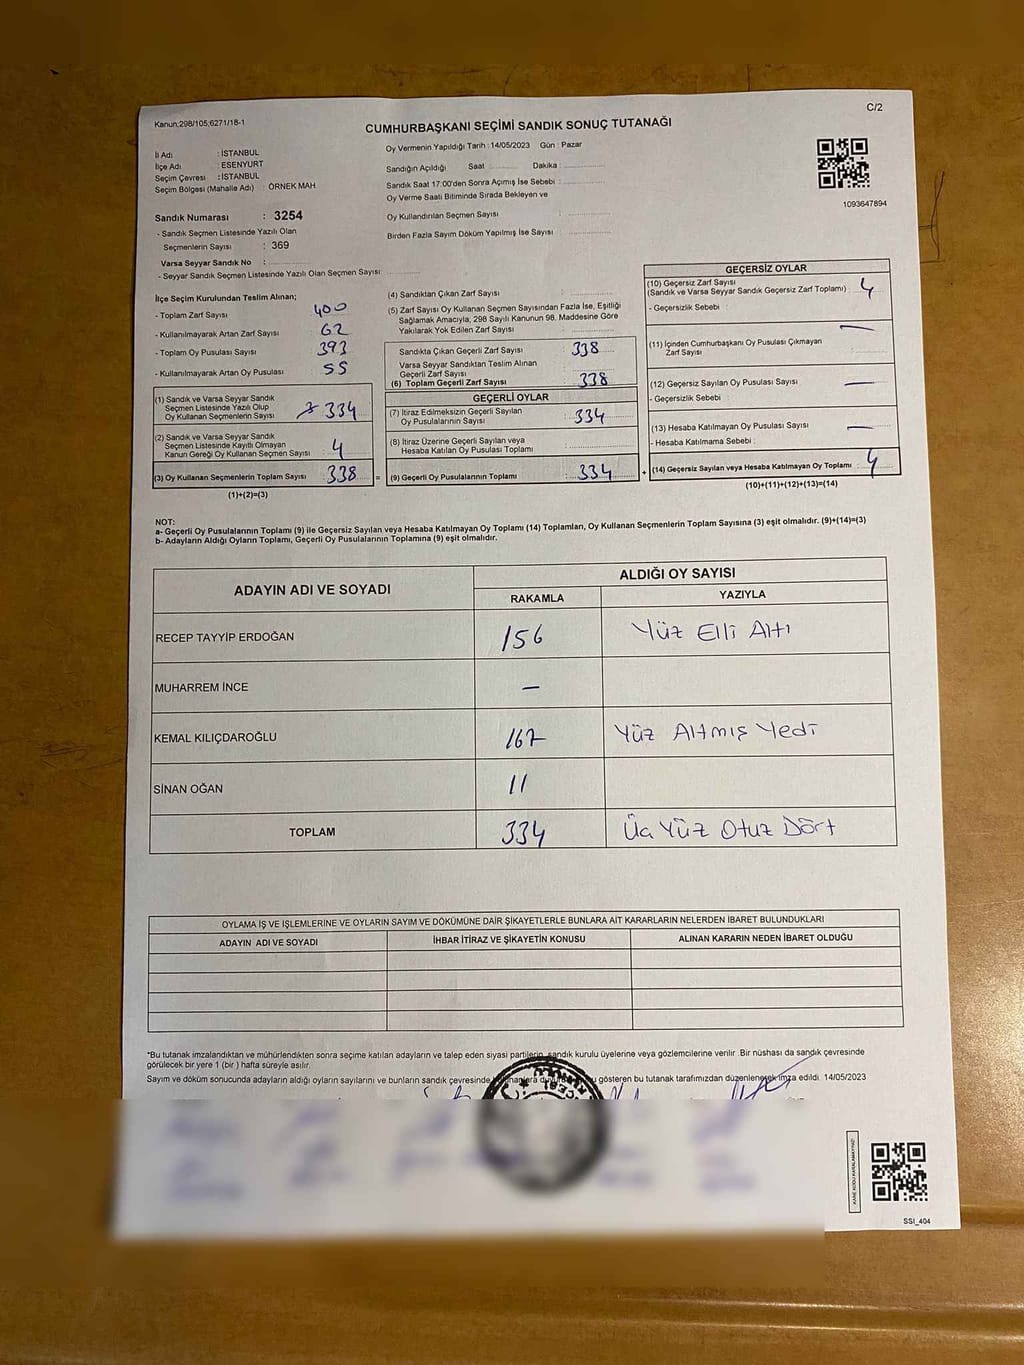 C/2
Kanun:298/105;6271/18-1
CUMHURBAŞKANI SEÇİMİ SANDIK SONUÇ TUTANAĞI
İl Adı : İSTANBUL
İlçe Adı : ESENYURT
Seçim Çevresi : İSTANBUL
Seçim Bölgesi (Mahalle Adı) : ÖRNEK MAH.
Sandık Numarası : 3254
- Sandık Seçmen Listesinde Yazılı Olan
Seçmenlerin Sayısı : 369
Varsa Seyyar Sandık No :
- Seyyar Sandık Seçmen Listesinde Yazılı Olan Seçmen Sayısı:
Oy Vermenin Yapıldığı Tarih : 14/05/2023 Gün : Pazar
Sandığın Açıldığı Saat Dakika :
Sandık Saat 17:00'den Sonra Açımış İse Sebebi :
Oy Verme Saati Bitiminde Sırada Bekleyen ve
Oy Kullandırılan Seçmen Sayısı :
Birden Fazla Sayım Döküm Yapılmış İse Sayısı :
1093647894
İlçe Seçim Kurulundan Teslim Alınan;
- Toplam Zarf Sayısı : 400
- Kullanılmayarak Artan Zarf Sayısı : 62
- Toplam Oy Pusulası Sayısı : 393
- Kullanılmayarak Artan Oy Pusulası : 55
(1) Sandık ve Varsa Seyyar Sandık
Seçmen Listesinde Yazılı Olup
Oy Kullanan Seçmenlerin Sayısı : 334
(2) Sandık ve Varsa Seyyar Sandık
Seçmen Listesinde Kayıtlı Olmayan
Kanun Gereği Oy Kullanan Seçmen Sayısı : 4
(3) Oy Kullanan Seçmenlerin Toplam Sayısı : 338
(1)+(2)=(3)
(4) Sandıktan Çıkan Zarf Sayısı :
(5) Zarf Sayısı Oy Kullanan Seçmen Sayısından Fazla İse, Eşitliği
Sağlamak Amacıyla; 298 Sayılı Kanunun 98. Maddesine Göre
Yakılarak Yok Edilen Zarf Sayısı :
Sandıkta Çıkan Geçerli Zarf Sayısı : 338
Varsa Seyyar Sandıktan Teslim Alınan
Geçerli Zarf Sayısı :
(6) Toplam Geçerli Zarf Sayısı : 338
=
GEÇERLİ OYLAR
(7) İtiraz Edilmeksizin Geçerli Sayılan
Oy Pusulalarının Sayısı : 334
(8) İtiraz Üzerine Geçerli Sayılan veya
Hesaba Katılan Oy Pusulası Toplamı :
(9) Geçerli Oy Pusulalarının Toplamı : 334
+
GEÇERSİZ OYLAR
(10) Geçersiz Zarf Sayısı
(Sandık ve Varsa Seyyar Sandık Geçersiz Zarf Toplamı) : 4
- Geçersizlik Sebebi :
(11) İçinden Cumhurbaşkanı Oy Pusulası Çıkmayan
Zarf Sayısı : —
(12) Geçersiz Sayılan Oy Pusulası Sayısı : —
- Geçersizlik Sebebi :
(13) Hesaba Katılmayan Oy Pusulası Sayısı : —
- Hesaba Katılmama Sebebi :
(14) Geçersiz Sayılan veya Hesaba Katılmayan Oy Toplamı : 4
(10)+(11)+(12)+(13)=(14)
NOT:
a- Geçerli Oy Pusulalarının Toplamı (9) ile Geçersiz Sayılan veya Hesaba Katılmayan Oy Toplamı (14) Toplamları, Oy Kullanan Seçmenlerin Toplam Sayısına (3) eşit olmalıdır. (9)+(14)=(3)
b- Adayların Aldığı Oyların Toplamı, Geçerli Oy Pusulalarının Toplamına (9) eşit olmalıdır.
ADAYIN ADI VE SOYADI
ALDIĞI OY SAYISI
RAKAMLA YAZIYLA
RECEP TAYYİP ERDOĞAN 156 Yüz Elli Altı
MUHARREM İNCE —
KEMAL KILIÇDAROĞLU 167 Yüz Altmış Yedi
SİNAN OĞAN 11
TOPLAM 334 Üç Yüz Otuz Dört
OYLAMA İŞ VE İŞLEMLERİNE VE OYLARIN SAYIM VE DÖKÜMÜNE DAİR ŞİKAYETLERLE BUNLARA AİT KARARLARIN NELERDEN İBARET BULUNDUKLARI
ADAYIN ADI VE SOYADI İHBAR İTİRAZ VE ŞİKAYETİN KONUSU ALINAN KARARIN NEDEN İBARET OLDUĞU
*Bu tutanak imzalandıktan ve mühürlendikten sonra seçime katılan adayların ve talep eden siyasi partilerin, sandık kurulu üyelerine veya gözlemcilerine verilir. Bir nüshası da sandık çevresinde
görülecek bir yere 1 (bir ) hafta süreyle asılır.
Sayım ve döküm sonucunda adayların aldığı oyların sayılarını ve bunların sandık çevresinde gösteren bu tutanak tarafımızdan düzenlenerek imza edildi. 14/05/2023
KARE KODU KARALAMAYINIZ!
SSI_404